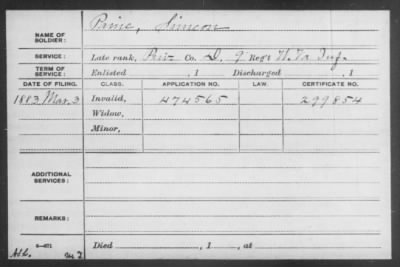 NAME OF SOLDIER: Paine, Simeon
SERVICE: Late rank, Priv Co. D, 9 Reg't W. Va Inf.
TERM OF SERVICE: Enlisted , 1 Discharged , 1
DATE OF FILING. CLASS. APPLICATION NO. LAW. CERTIFICATE NO.
1883 Mar. 3 Invalid, 474565 299854
Widow,
Minor,
ADDITIONAL SERVICES:
REMARKS:
Died , 1 , at